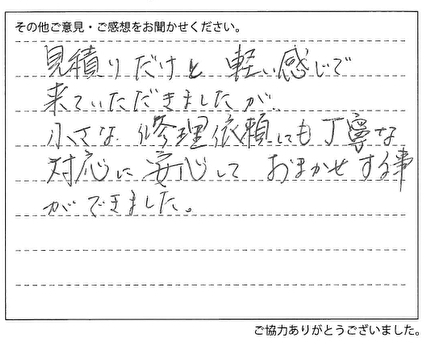 その他ご意見・ご感想をお聞かせください。
見積りだけと軽い感じで
来ていただきましたが、
小さな修理依頼にも丁寧な
対応に安心しておまかせする事
ができました。
ご協力ありがとうございました。